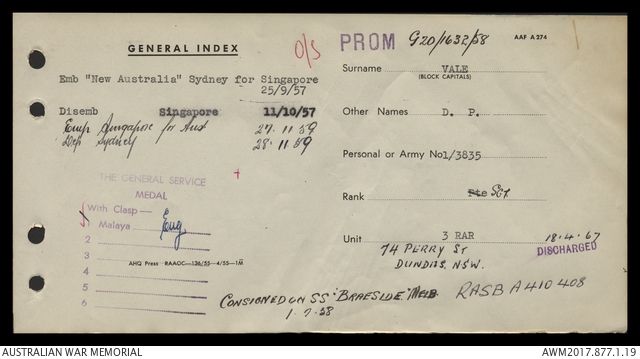 GENERAL INDEX
O/S
PROM G20/1632/58
AAF A 274
Emb "New Australia" Sydney for Singapore
25/9/57
Surname VALE
(BLOCK CAPITALS)
Disemb Singapore 11/10/57
Other Names D. P.
Emp Singapore for Aust 27.11.59
Dep Sydney 28.11.59
Personal or Army No 1/3835
THE GENERAL SERVICE
MEDAL
Rank Pte Sgt
With Clasp—
1 Malaya Eng
Unit 3 RAR
18.4.67
DISCHARGED
2
3
4
5
6
AHQ Press RAAOC—136/55—4/55—1M
74 PERRY ST
DUNDAS, NSW.
CONSIGNED ON SS "BRAESIDE" Melb
1.7.58
RASB A 410 408
AUSTRALIAN WAR MEMORIAL
AWM2017.877.1.19